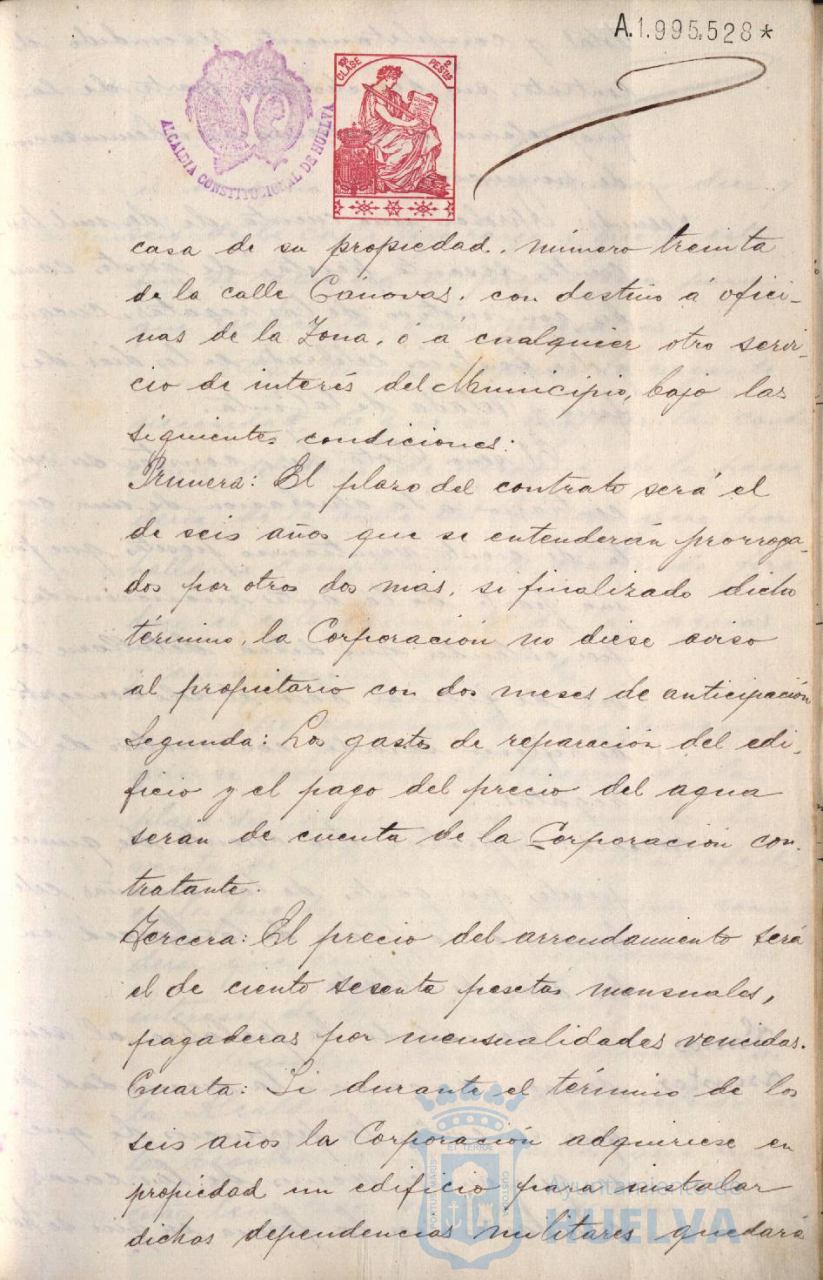 A.1.995.528*
ALCALDIA CONSTITUCIONAL DE HUELVA
10ª CLASE
2 PESETAS
casa de su propiedad, número treinta
de la calle Cánovas, con destino á ofici-
nas de la Zona, ó á cualquier otro servi-
cio de interés del Municipio, bajo las
siguientes condiciones:
Primera: El plazo del contrato será el
de seis años que se entenderán prorroga-
dos por otros dos mas, si finalizado dicho
término, la Corporación no diese aviso
al propietario con dos meses de anticipación
Segunda: Los gastos de reparación del edi-
ficio y el pago del precio del agua
serán de cuenta de la Corporación con-
tratante.
Tercera: El precio del arrendamiento será
el de ciento sesenta pesetas mensuales,
pagaderas por mensualidades vencidas.
Cuarta: Si durante el término de los
seis años la Corporación adquiriese en
propiedad un edificio para instalar
dichas dependencias militares quedará
Ayuntamiento de
HUELVA